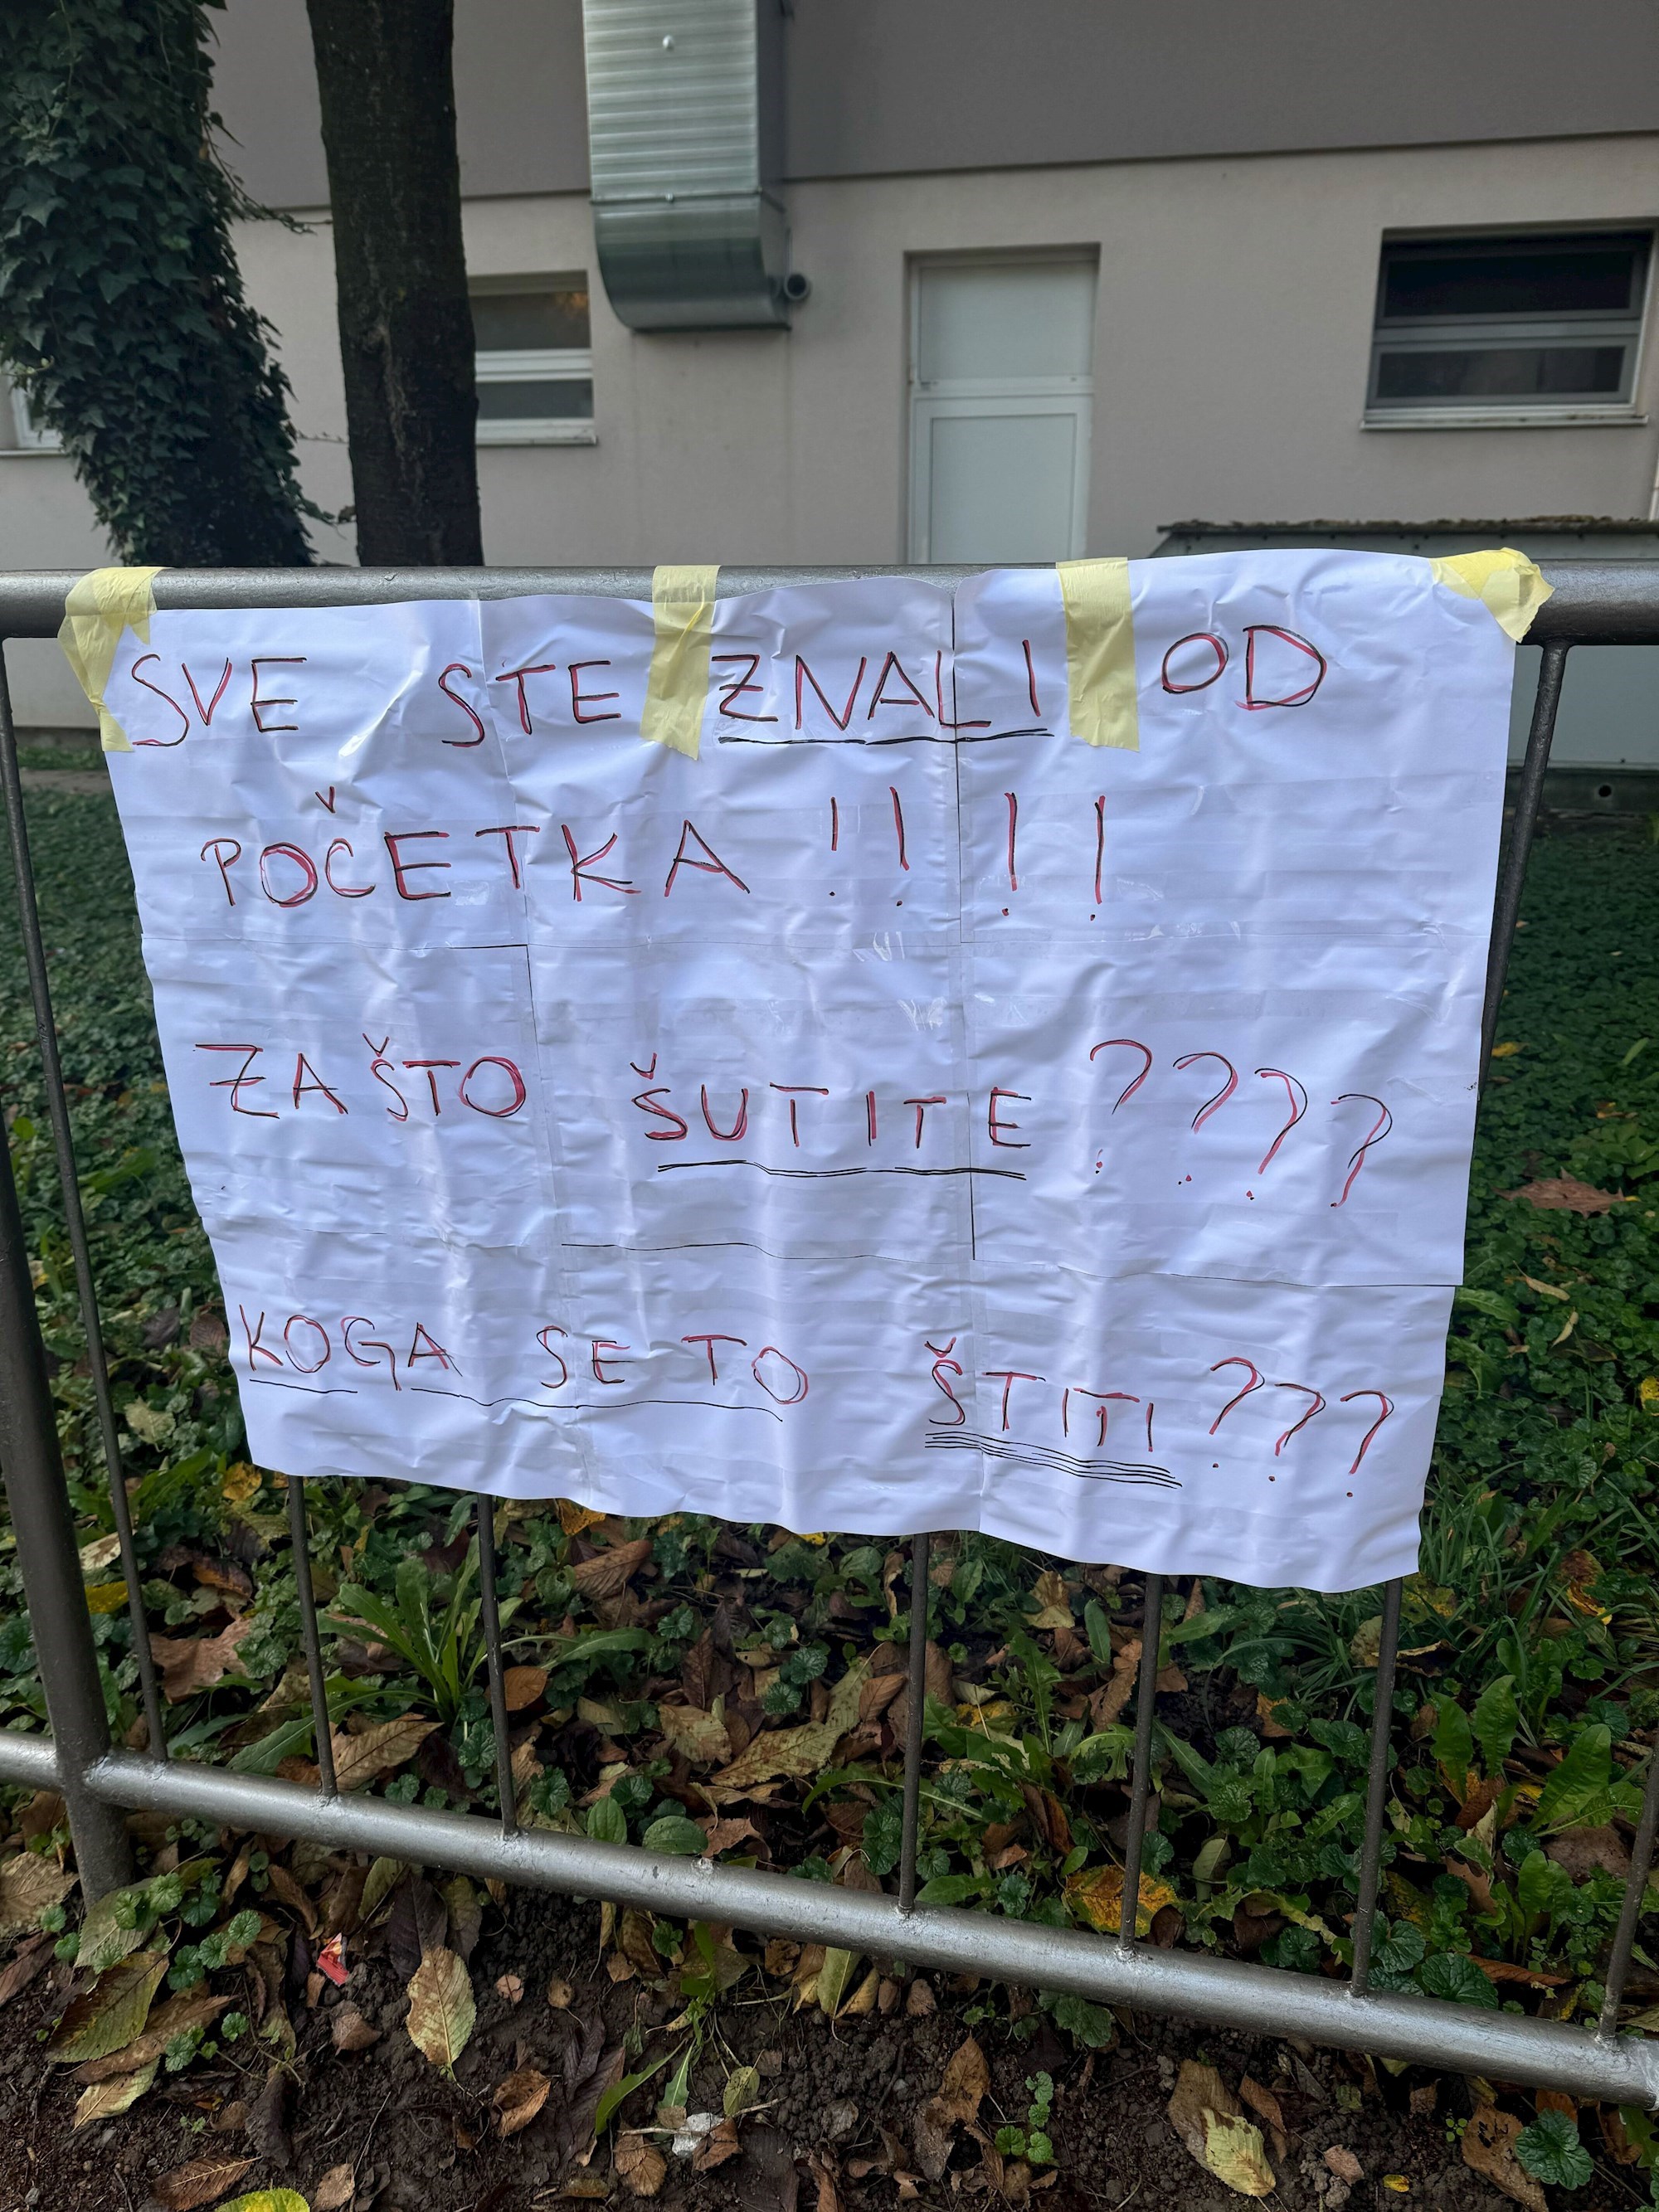 SVE STE ZNALI OD
POČETKA !!!!
ZAŠTO ŠUTITE ????
KOGA SE TO ŠTITI ???